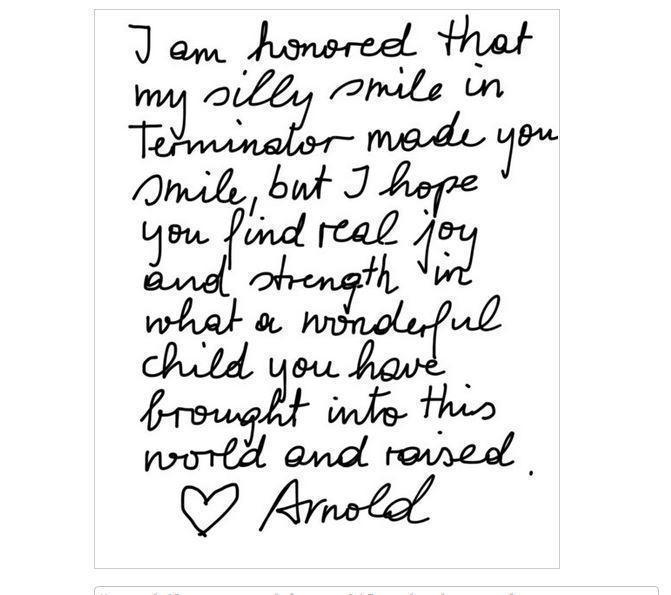 I am honored that
my silly smile in
Terminator made you
smile, but I hope
you find real joy
and strength in
what a wonderful
child you have
brought into this
world and raised.
♡ Arnold